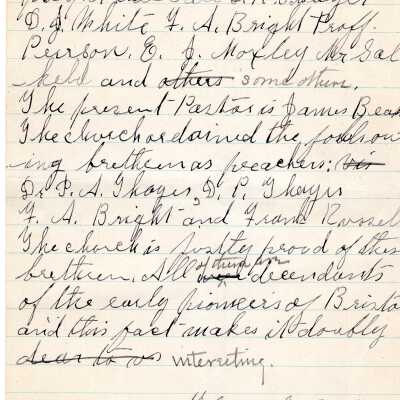 D. J. White F. A. Bright Proff.
Peerson. E. J. Moxley Mr Sal
and others some others.
The present Pastor is James Bea
The church ordained the follow
ing brethern as preachers: his
Dr P. A. Thayer, D. P. Thayer
F. A. Bright and Frank Russel
The church is justly proud of thes
brethern. All of them are decendants
of the early pioneers of Bristo
and this fact makes it doubly
dear to us interesting.